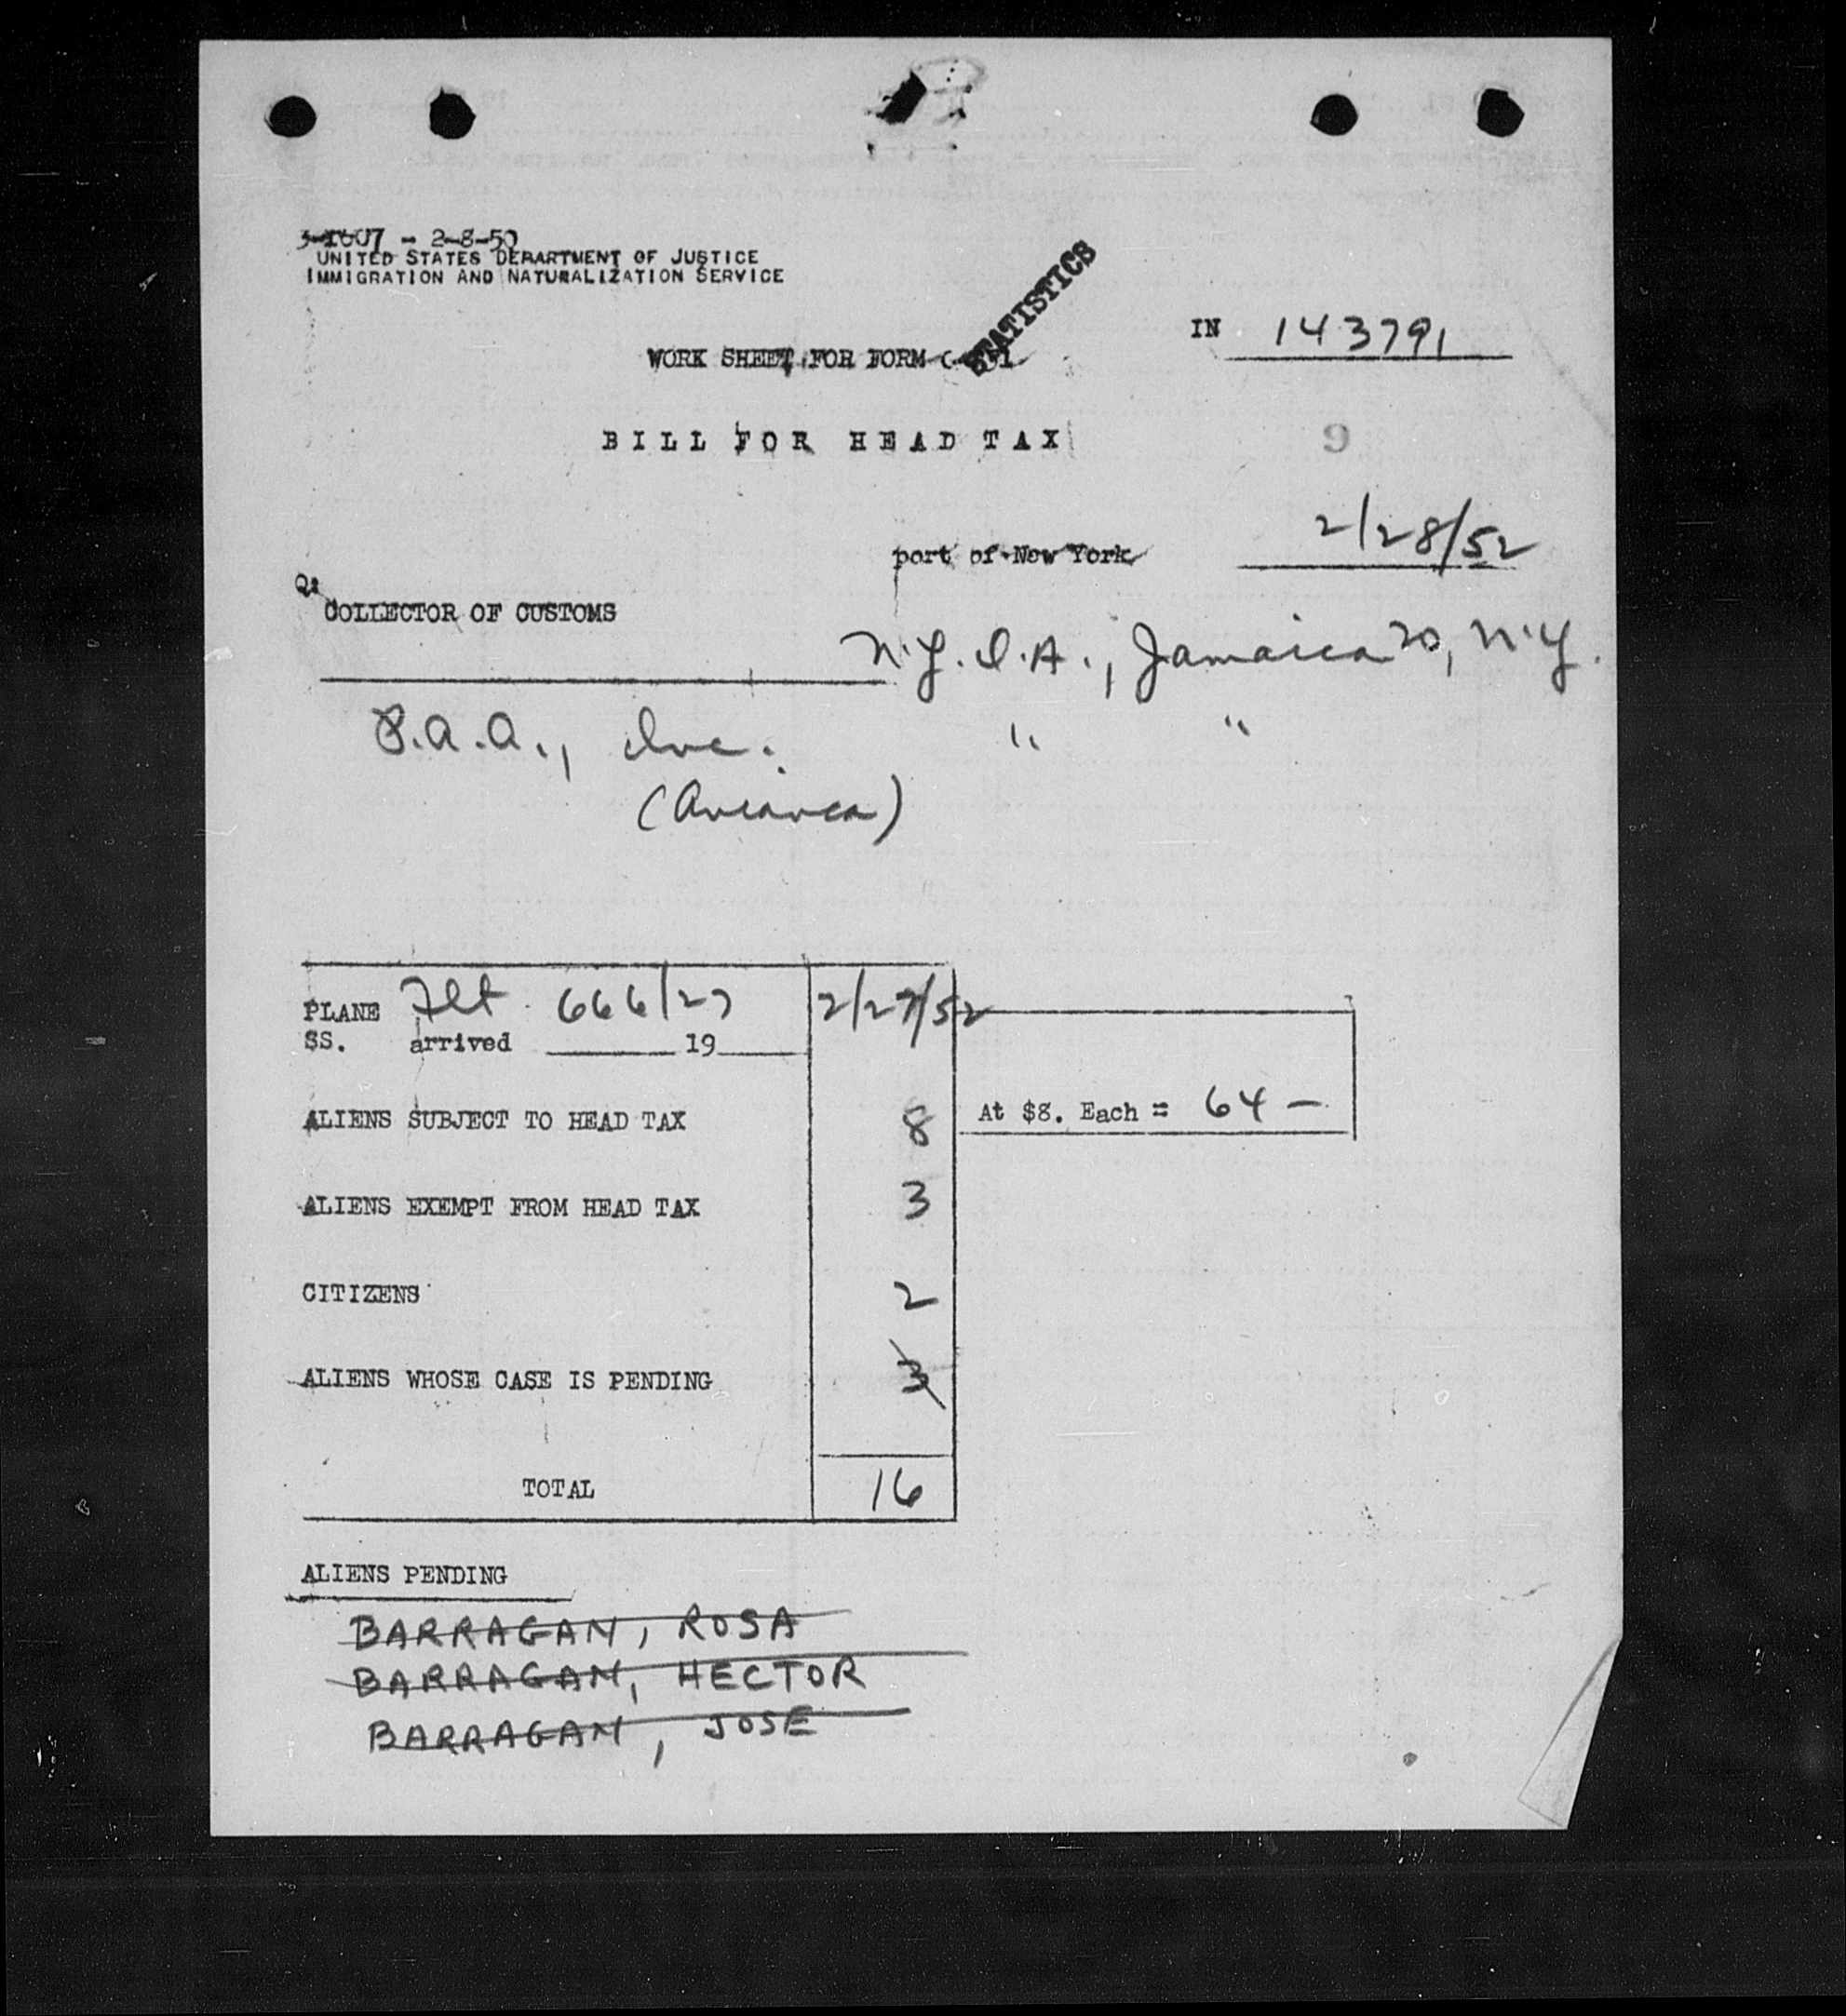 3-1607 - 2-8-50
UNITED STATES DEPARTMENT OF JUSTICE
IMMIGRATION AND NATURALIZATION SERVICE
STATISTICS
IN 143791
WORK SHEET FOR FORM
BILL FOR HEAD TAX
9
port of New York 2/28/52
COLLECTOR OF CUSTOMS
N.Y.I.A., Jamaica 20, N.Y.
P.A.A., Inc. " "
(Avianca)
PLANE Flt 666/27 2/27/52
SS. arrived 19
ALIENS SUBJECT TO HEAD TAX 8 At $8. Each = 64 -
ALIENS EXEMPT FROM HEAD TAX 3
CITIZENS 2
ALIENS WHOSE CASE IS PENDING 3
TOTAL 16
ALIENS PENDING
BARRAGAN, ROSA
BARRAGAN, HECTOR
BARRAGAN, JOSE